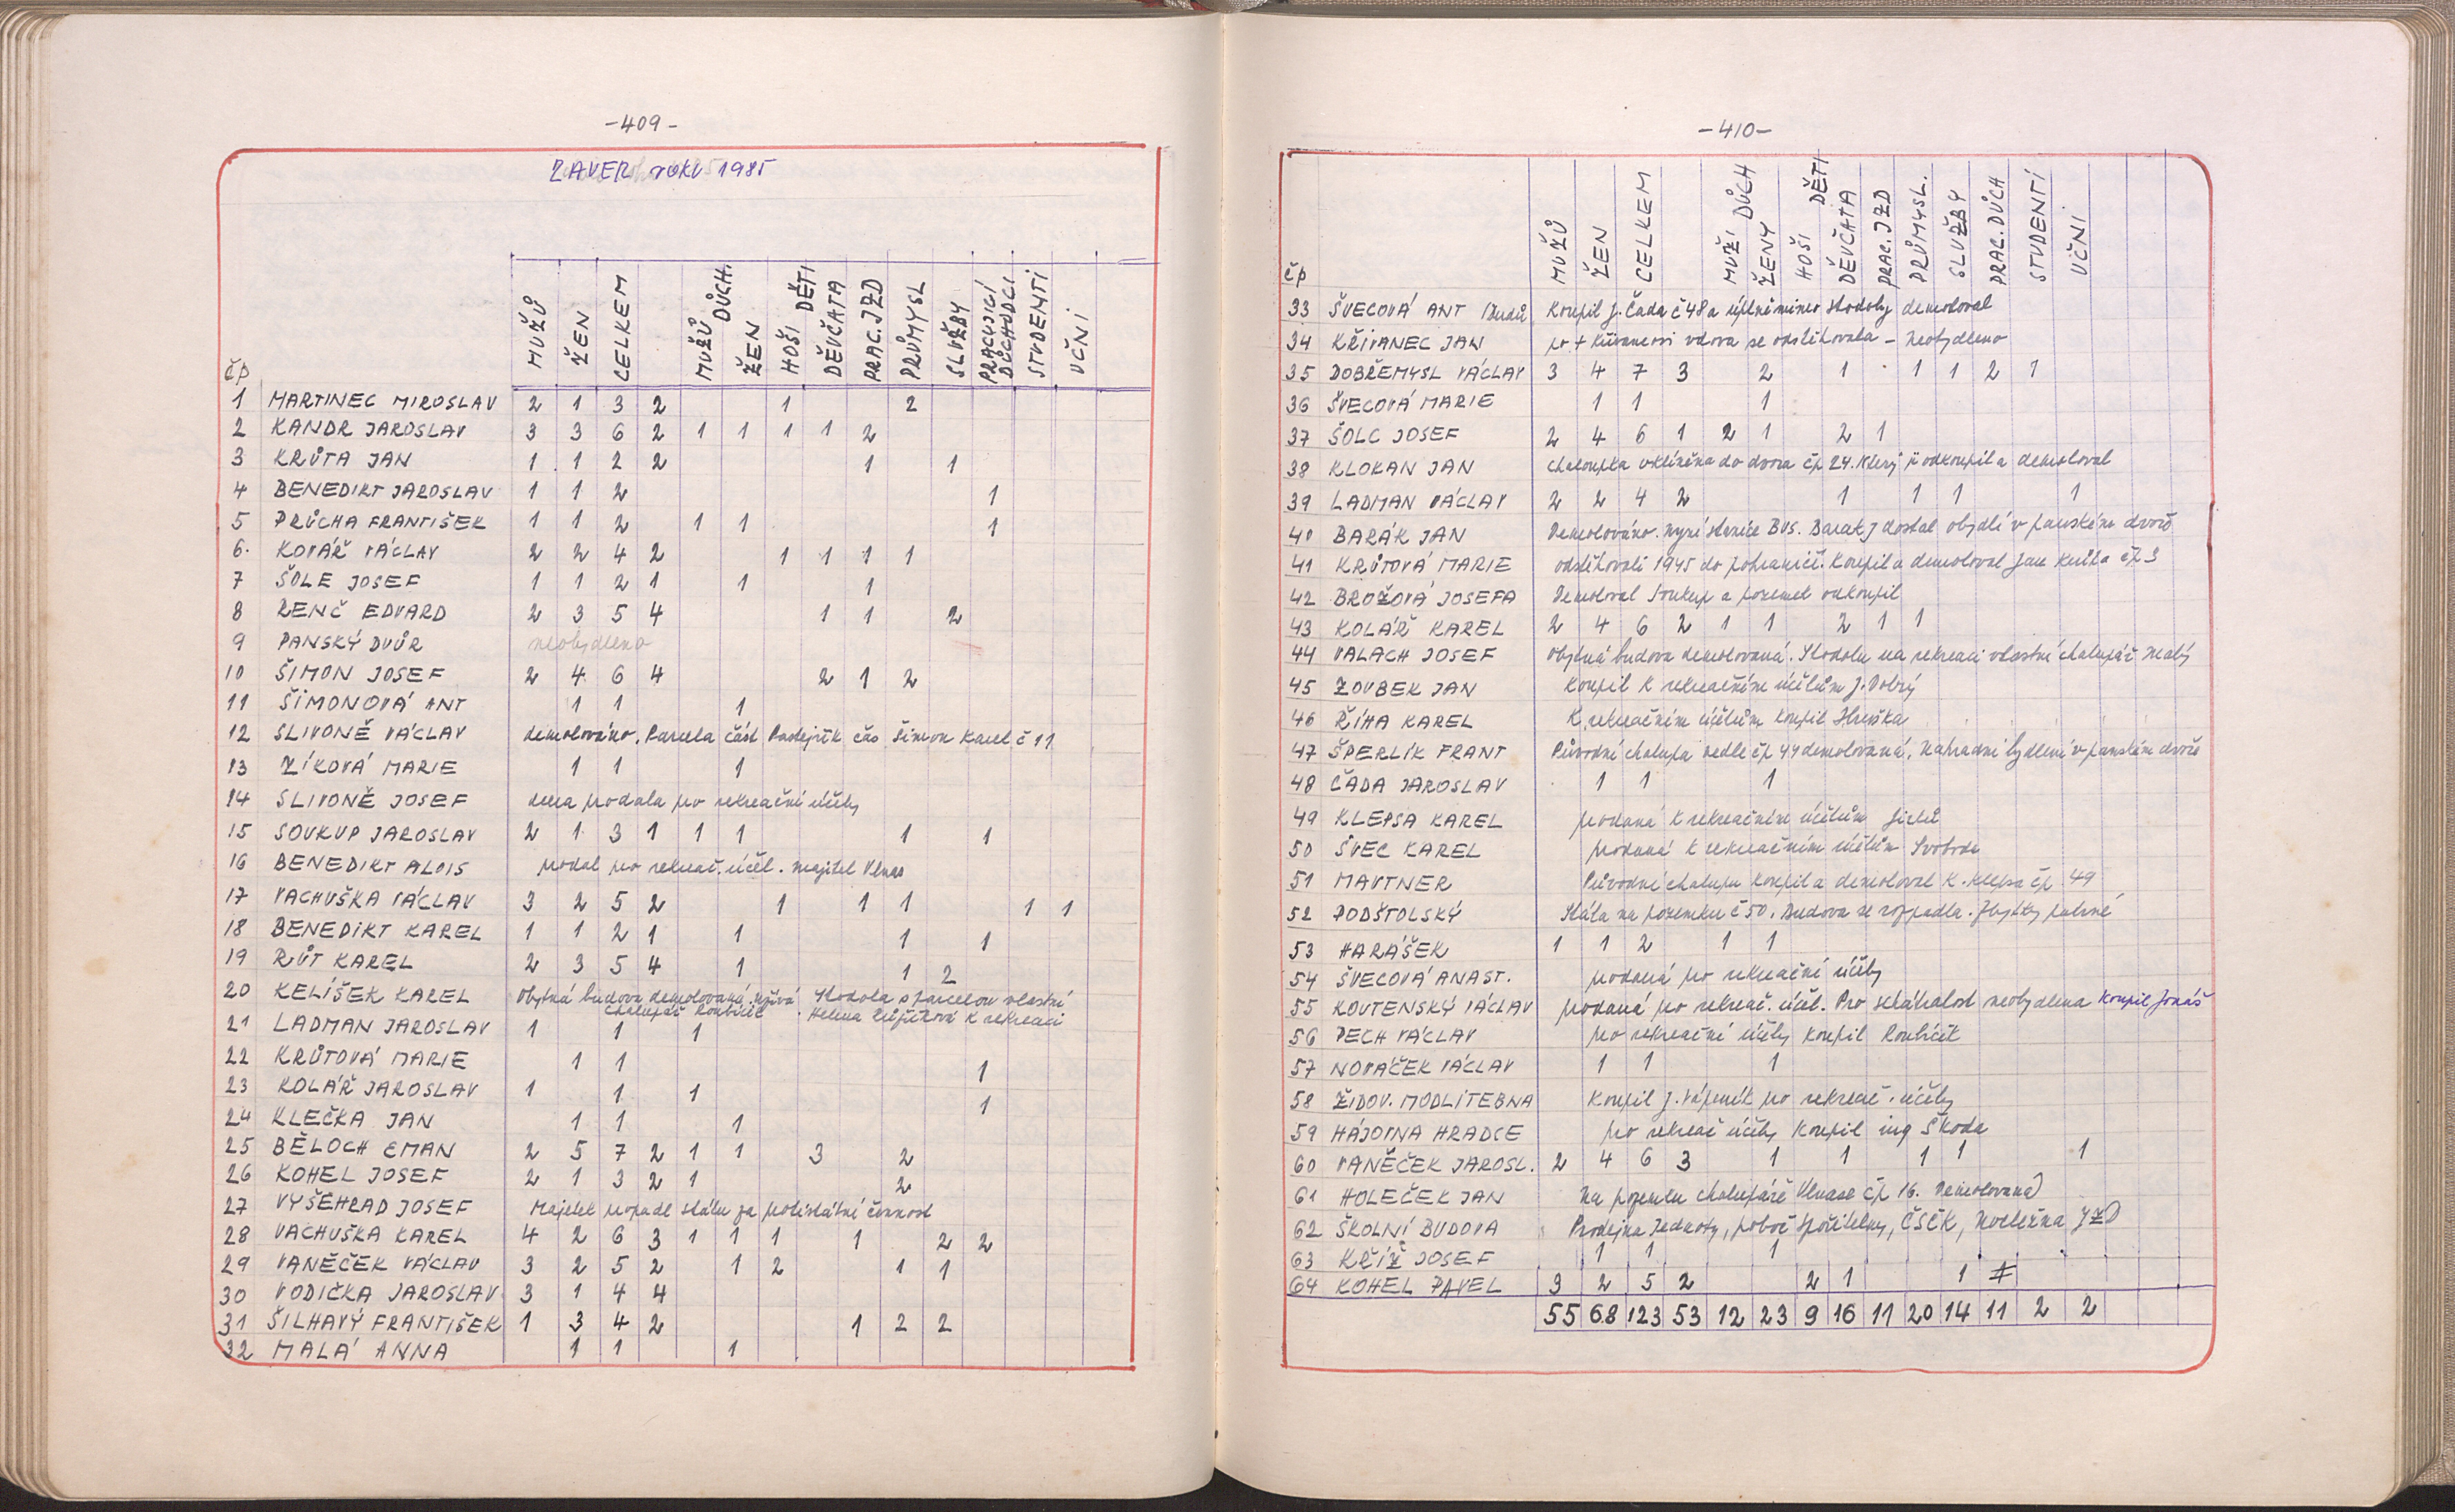 -409-
ZAVER roku 1985
čp MUŽŮ ŽEN CELKEM MUŽŮ DŮCH. ŽEN HOŠI DĚTI DĚVČATA PRAC. JZD PRŮMYSL SLUŽBY PRACUJICÍ DŮCHODCI STUDENTI UČNI
1 MARTINEC MIROSLAV 2 1 3 2 1 2
2 KANDR JAROSLAV 3 3 6 2 1 1 1 1 2
3 KRŮTA JAN 1 1 2 2 1 1
4 BENEDIKT JAROSLAV 1 1 2 1
5 PRŮCHA FRANTIŠEK 1 1 2 1 1 1
6. KOVÁŘ VÁCLAV 2 2 4 2 1 1 1 1
7 ŠOLE JOSEF 1 1 2 1 1 1
8 RENČ EDVARD 2 3 5 4 1 1 2
9 PANSKÝ DVŮR neobydleno
10 ŠIMON JOSEF 2 4 6 4 2 1 2
11 ŠIMONOVÁ ANT 1 1 1
12 SLIVONĚ VÁCLAV demolováno. Parcela část čás Šimon Karel č 11
13 ZÍKOVÁ MARIE 1 1 1
14 SLIVONĚ JOSEF dcera prodala pro rekreační účely
15 SOUKUP JAROSLAV 2 1 3 1 1 1 1 1
16 BENEDIKT ALOIS prodal pro rekreač. účel. majitel Vlnas
17 VACHUŠKA VÁCLAV 3 2 5 2 1 1 1 1 1
18 BENEDIKT KAREL 1 1 2 1 1 1 1
19 RŮT KAREL 2 3 5 4 1 1 2
20 KELÍŠEK KAREL Obytná budova demolovaná. užívá Stodola s parcelou vlastní
chalupář Roubíček. Helena k rekreaci
21 LADMAN JAROSLAV 1 1 1
22 KRŮTOVÁ MARIE 1 1 1
23 KOLÁŘ JAROSLAV 1 1 1 1
24 KLEČKA JAN 1 1 1
25 BĚLOCH EMAN 2 5 7 2 1 1 3 2
26 KOHEL JOSEF 2 1 3 2 1 2
27 VYŠEHRAD JOSEF Majetek propadl státu za protistátní činnost
28 VACHUŠKA KAREL 4 2 6 3 1 1 1 1 2 2
29 VANĚČEK VÁCLAV 3 2 5 2 1 2 1 1
30 VODIČKA JAROSLAV 3 1 4 4
31 ŠILHAVÝ FRANTIŠEK 1 3 4 2 1 2 2
32 MALÁ ANNA 1 1 1
-410-
čp MUŽŮ ŽEN CELKEM MUŽI DŮCH ŽENY HOŠI DĚTI DĚVČATA PRAC. JZD PRŮMYSL. SLUŽBY PRAC. DŮCH STUDENTÍ UČNI
33 ŠVECOVÁ ANT Koupil J. Čada č 48 a úplně mimo stodoly demoloval
34 KŘIVANEC JAN po + Křivancovi vdova se odstěhovala – Neobydleno
35 DOBŘEMYSL VÁCLAV 3 4 7 3 2 1 1 1 2 1
36 ŠVECOVÁ MARIE 1 1 1
37 ŠOLC JOSEF 2 4 6 1 2 1 2 1
38 KLOKAN JAN Chaloupka vklíněna do dvora čp 24. Který ji odkoupil a demoloval
39 LADMAN VÁCLAV 2 2 4 2 1 1 1 1
40 BARÁK JAN Demolováno. nyní stanice BUS. Barák J dostal obydlí v panském dvoře
41 KRŮTOVÁ MARIE odstěhovali 1945 do pohraničí. Koupil a demoloval Jan Krůta čp 3
42 BROŽOVÁ JOSEFA Demoloval Soukup a pozemek odkoupil
43 KOLÁŘ KAREL 2 4 6 2 1 1 2 1 1
44 VALACH JOSEF Obytná budova demolovaná. Stodolu na rekreaci vlastní chalupář Malý
45 ZOUBEK JAN Koupil k rekreačním účelům J. Dobrý
46 ŘÍHA KAREL K rekreačním účelům koupil Hruška
47 ŠPERLÍK FRANT Původní chalupa vedle čp 44 demolovaná. Nahradní bydlení v panském dvoře
48 ČADA JAROSLAV 1 1 1
49 KLEPSA KAREL prodaná k rekreačním účelům
50 ŠVEC KAREL prodaná k rekreačním účelům Svoboda
51 MAUTNER Původní chalupu koupil a demoloval K. Klepsa čp 49
52 PODŠTOLSKÝ Stála na pozemku č 50. Budova se rozpadla. Zbytky patrné
53 HARÁŠEK 1 1 2 1 1
54 ŠVECOVÁ ANAST. prodaná pro rekreační účely
55 KOUTENSKÝ VÁCLAV prodaná pro rekreač. účel. Pro schátralost neobydlena Koupil Jonáš
56 PECH VÁCLAV pro rekreační účely koupil Roubíček
57 NOVÁČEK VÁCLAV 1 1 1
58 ŽIDOV. MODLITEBNA Koupil J. Vápeník pro rekreač. účely
59 HÁJOVNA HRADCE pro rekreač účely koupil ing Škoda
60 VANĚČEK JAROSL. 2 4 6 3 1 1 1 1 1
61 HOLEČEK JAN Na pozemku chalupáře Vlnase čp 16. Demolovaná
62 ŠKOLNÍ BUDOVA Prodejna Jednoty, poboč spořitelny, ČSČK, JZD
63 KŘÍŽ JOSEF 1 1 1
64 KOHEL PAVEL 3 2 5 2 2 1 1
55 68 123 53 12 23 9 16 11 20 14 11 2 2